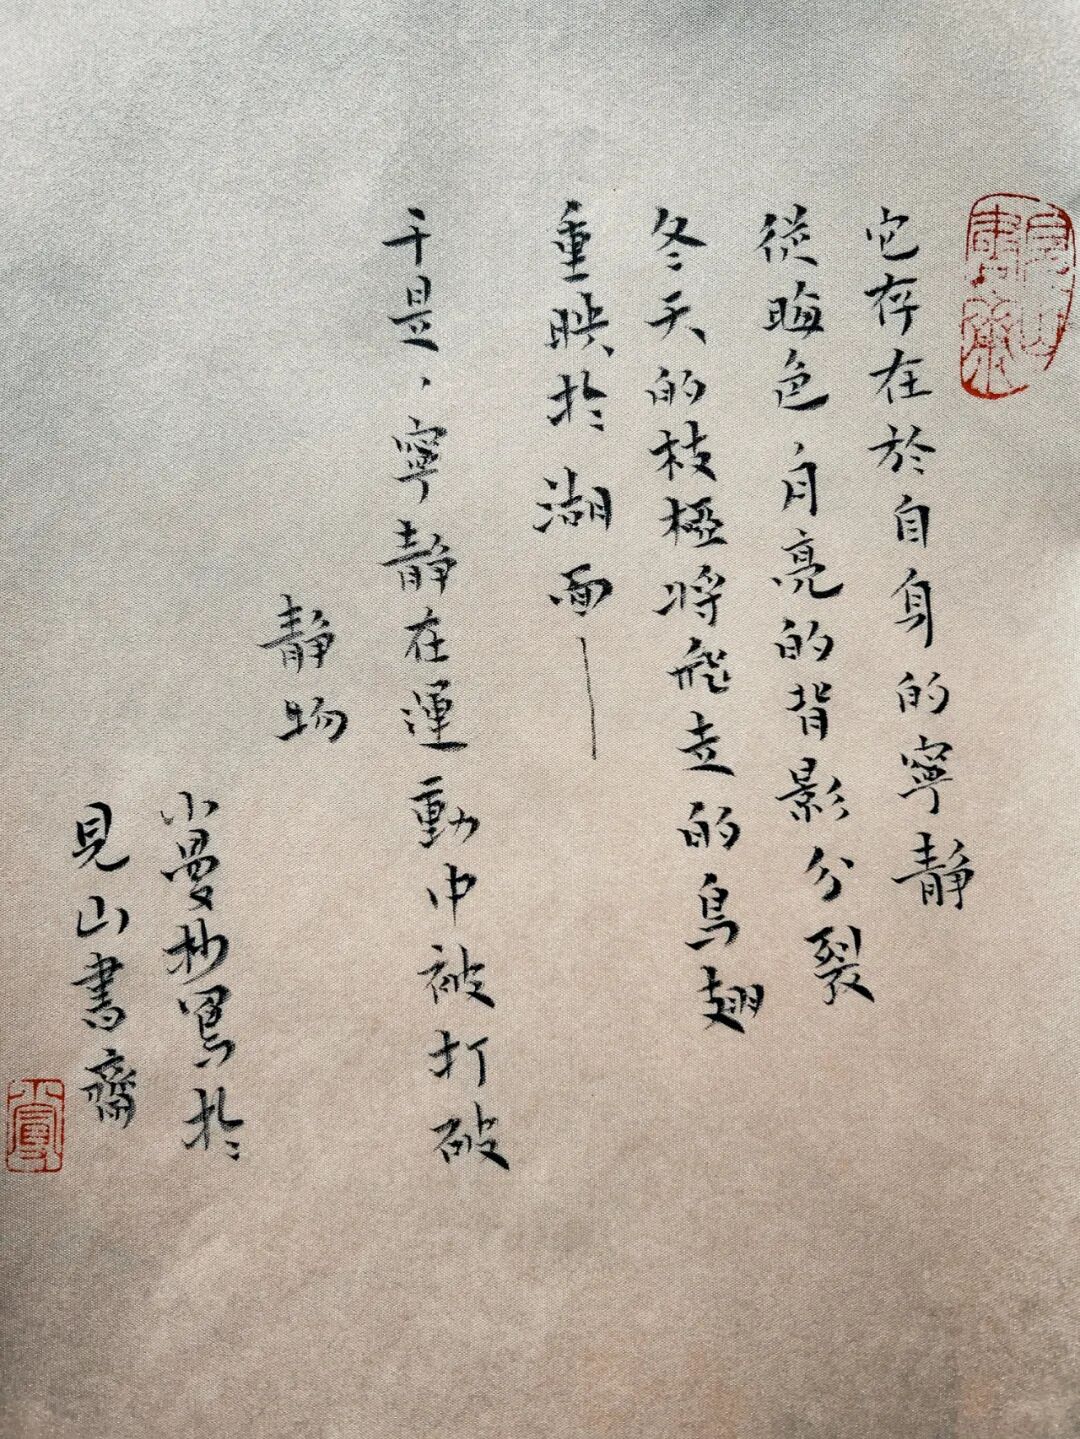 見山書齋
它存在於自身的寧靜
從晦色月亮的背影分裂
冬天的枝椏將飛走的鳥翅
重映於湖面——
于是、寧靜在運動中被打破
靜物
小曼抄寫於
見山書齋